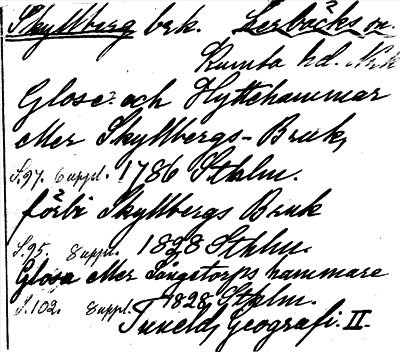 Skyllberg brk. Lerbäcks sn.
Kumla hd. Nrk
Glose- och Hyttehammar
eller Skyllbergs-Bruk,
S. 97. 6 uppl. 1786 Sthlm.
förbi Skyllbergs Bruk
S. 95. 8 uppl. 1828 Sthlm.
Glosa eller Långetorps hammare
S. 102. 8 uppl. 1828, Sthlm.
Tuneld, Geografi. II.